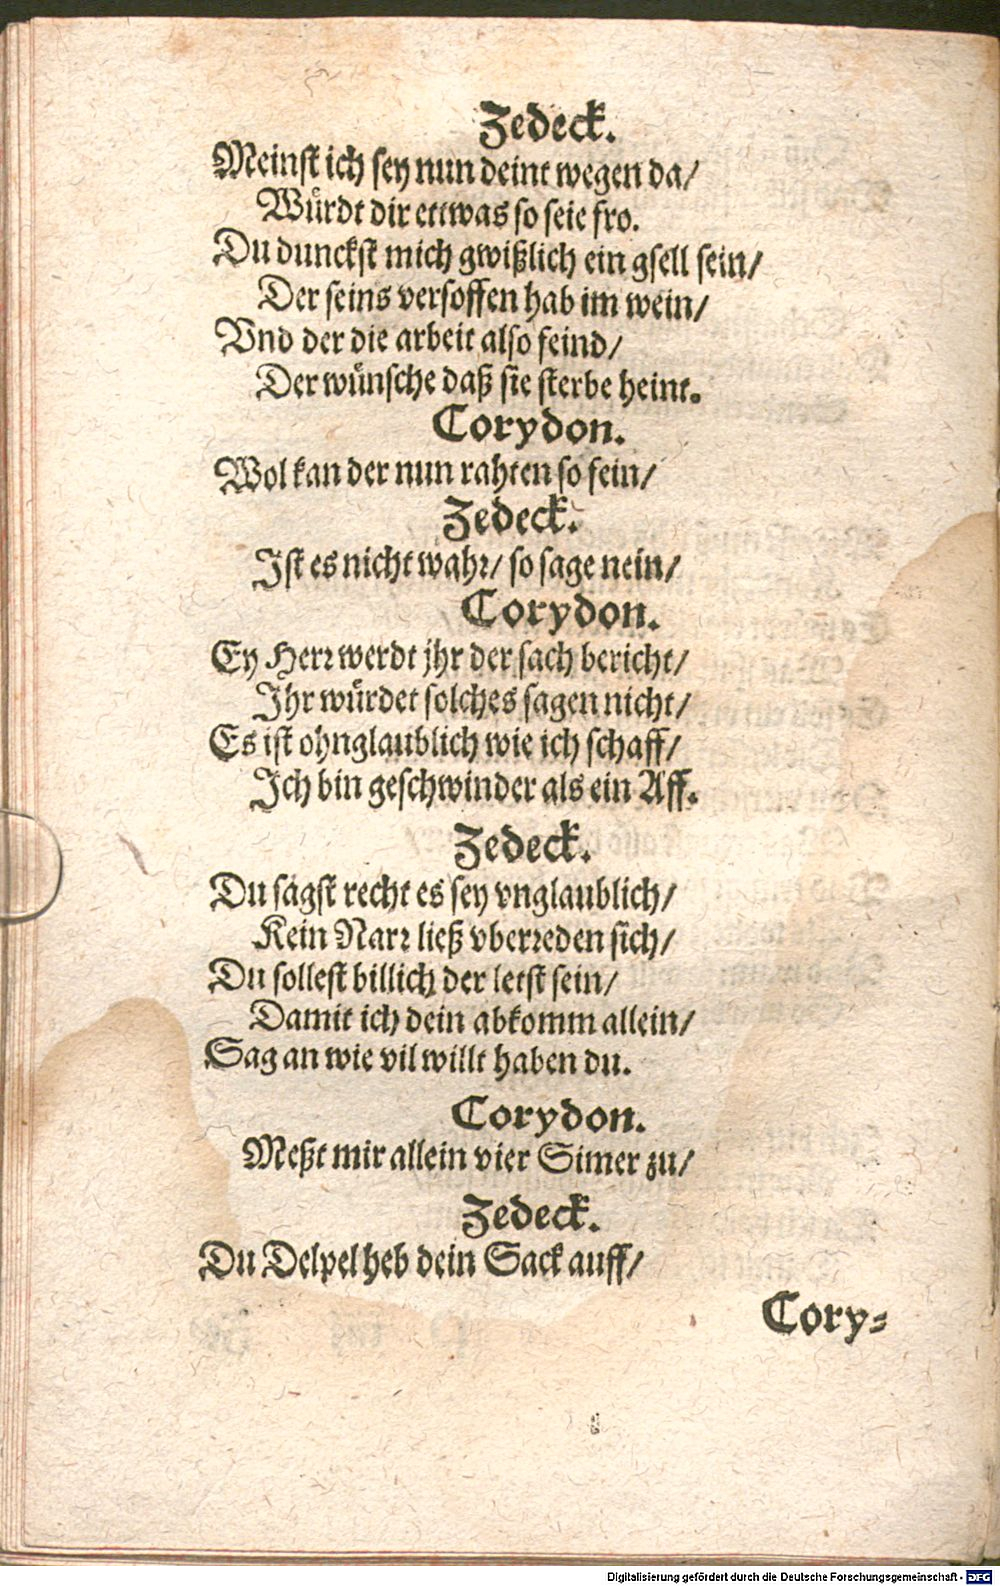 Zedeck.
Meinst ich sey nun deint wegen da/
Wuͤrdt dir ettwas so seie fro.
Du dunckst mich gwißlich ein gsell sein/
Der seins versoffen hab im wein/
Vnd der die arbeit also feind/
Der wuͤnsche daß sie sterbe heint.
Corydon.
Wol kan der nun rahten so fein/
Zedeck.
Ist es nicht wahr/ so sage nein/
Corydon.
Ey Herr werdt jhr der sach bericht/
Ihr wuͤrdet solches sagen nicht/
Es ist ohnglaublich wie ich schaff/
Ich bin geschwinder als ein Aff.
Zedeck.
Du sagst recht es sey vnglaublich/
Kein Narr ließ vberreden sich/
Du sollest billich der letst sein/
Damit ich dein abkomm allein/
Sag an wie vil willt haben du.
Corydon.
Meßt mir allein vier Simer zu/
Zedeck.
Du Delpel heb dein Sack auff/
Cory-
Digitalisierung gefördert durch die Deutsche Forschungsgemeinschaft - DFG